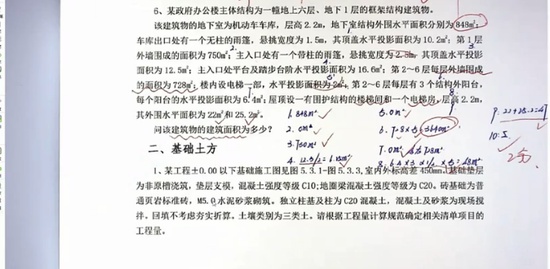 6、某政府办公楼主体结构为一幢地上六层、地下1层的框架结构建筑物。
该建筑物的地下室为机动车车库，层高2.2m，地下室结构外围水平面积分别为848㎡
车库出口处有一个无柱的雨篷，悬挑宽度为1.5m，其顶盖水平投影面积为10.2㎡；第1层
外墙围成的面积为750㎡；主入口处有一个带柱的雨篷，悬挑宽度为2.3m，其顶盖水平投影
面积为12.5㎡；主入口处平台及踏步台阶水平投影面积为16.6㎡；第2～6层每层外墙围成
的面积为728㎡；楼内设电梯一部，水平投影面积为2㎡；第2～6层每层有3个结构外阳台，
每个阳台的水平投影面积为6.4㎡；屋顶设一有围护结构的楼梯间和一个电梯房，层高2.2m，
其外围水平面积为22㎡和25.2㎡。
问该建筑物的建筑面积为多少？
1. 848㎡
2. 0㎡
3. 750㎡
5. 0㎡
7. 0㎡
10. 5
二、基础土方
1、某工程±0.00以下基础施工图见图5.3.1-图5.3.3，室内外标高差450mm，基础垫层
为非原槽浇筑，垫层支模，混凝土强度等级C10；地圈梁混凝土强度等级为C20。砖基础为普
通页岩标准砖，M5.0水泥砂浆砌筑。独立柱基及柱为C20混凝土，混凝土及砂浆为现场搅
拌，回填不考虑夯实折算。土壤类别为三类土。请根据工程量计算规范确定相关清单项目的
工程量。